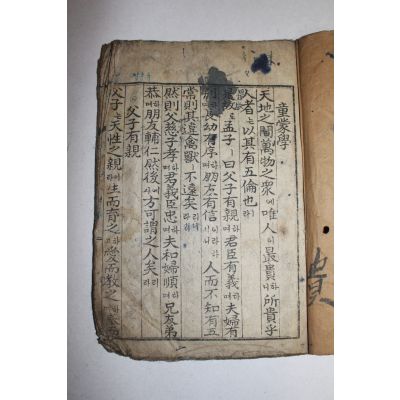 童蒙學
天地之間萬物之衆에唯人이最貴하니所貴乎
人者는以其有五倫也라
是故로孟子ㅣ曰父子有親하며君臣有義하며夫婦有
別하며長幼有序하며朋友有信이라하시니人而不知有五
常則其違禽獸ㅣ不遠矣리라
然則父慈子孝하며君義臣忠하며夫和婦順하며兄友弟
恭하며朋友輔仁然後에사方可謂之人矣리라
父子有親
父子는天性之親이라生而育之하고愛而教之하며奉而